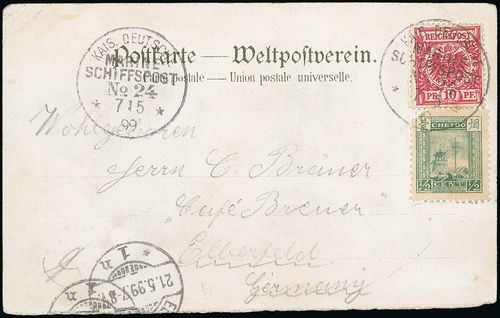 Postkarte — Weltpostverein.
Carte postale — Union postale universelle.
KAIS. DEUTSCHE
MARINE
SCHIFFSPOST
No 24
* 7/5 *
99
REICHSPOST
PF. 10 PF.
CHEFOO
1/2 CENT 1/2
Wohlgeboren
Herrn C. Bräuer
„Café Bremer"
Elberfeld
Germany
* 1 n
21.5.99.7-8
1 n